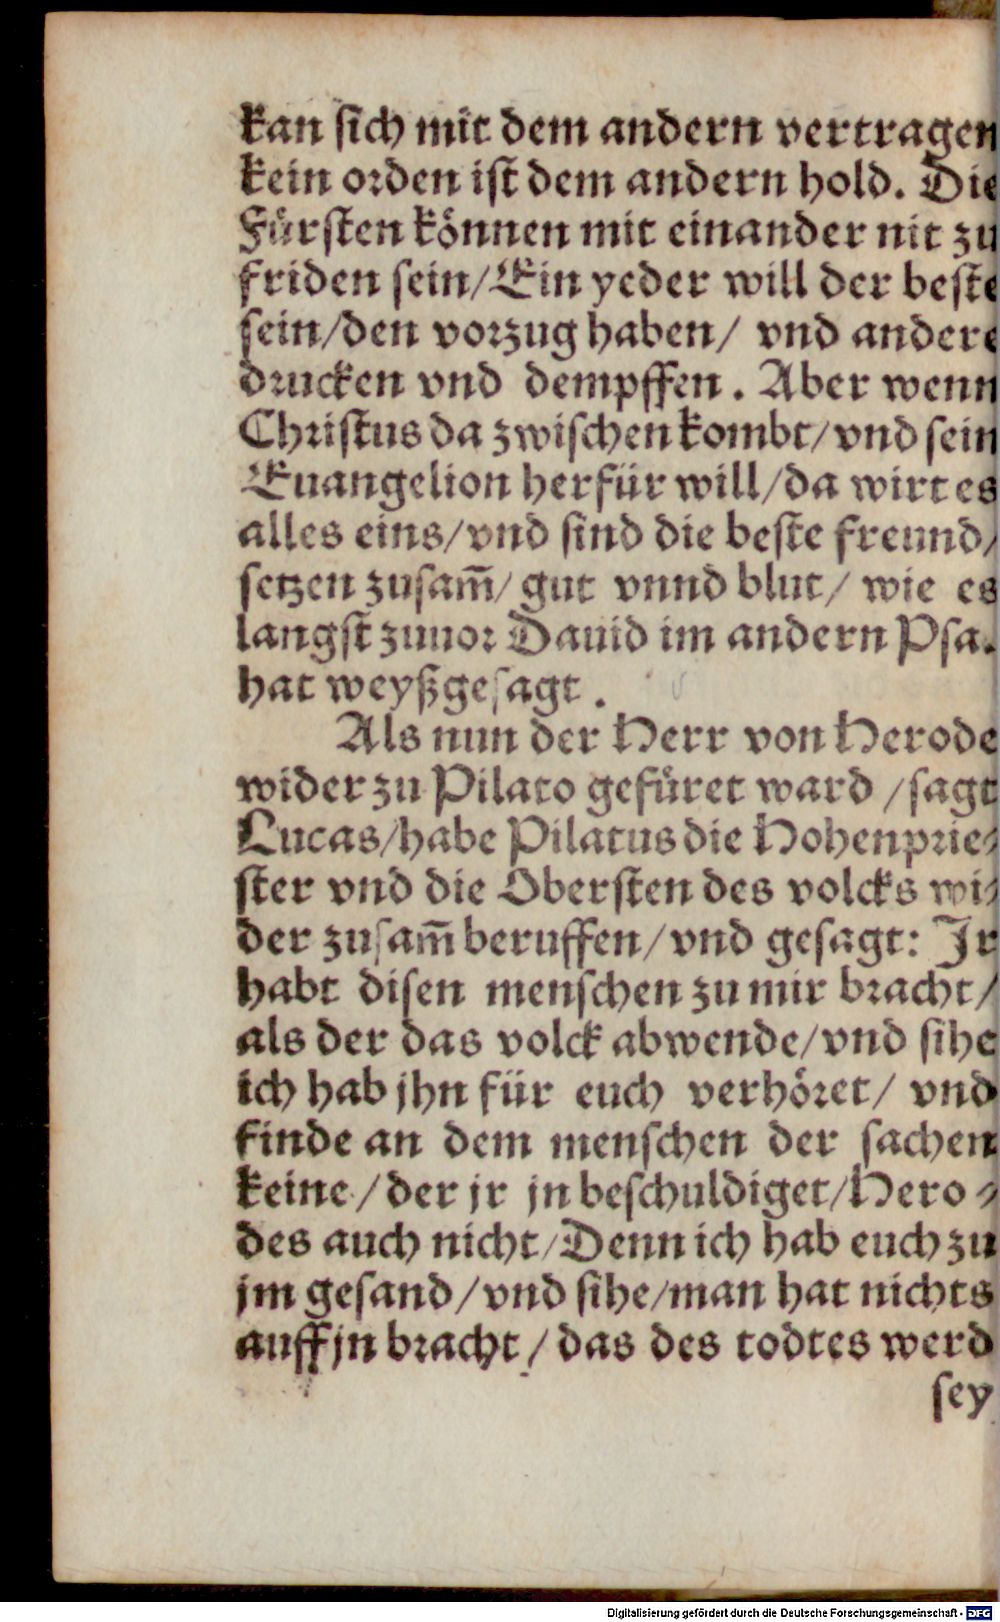 kan sich mit dem andern vertragen
kein orden ist dem andern hold. Die
Fürsten können mit einander nit zu
friden sein/Ein yeder will der beste
sein/den vorzug haben/ vnd andere
drucken vnd dempffen. Aber wenn
Christus da zwischen kombt/vnd sein
Euangelion herfür will/da wirt es
alles eins/vnd sind die beste freund/
setzen zusam̄/ gut vnnd blut/ wie es
langst zuuor Dauid im andern Psa.
hat weyßgesagt.
Als nun der Herr von Herode
wider zu Pilato gefüret ward /sagt
Lucas/habe Pilatus die Hohenprie⸗
ster vnd die Obersten des volcks wi⸗
der zusam̄ beruffen/vnd gesagt: Jr
habt disen menschen zu mir bracht/
als der das volck abwende/vnd sihe
ich hab jhn für euch verhöret/ vnd
finde an dem menschen der sachen
keine/der jr jn beschuldiget/Hero⸗
des auch nicht/Denn ich hab euch zu
jm gesand/vnd sihe/man hat nichts
auff jn bracht/das des todtes werd
sey
Digitalisierung gefördert durch die Deutsche Forschungsgemeinschaft - DFG